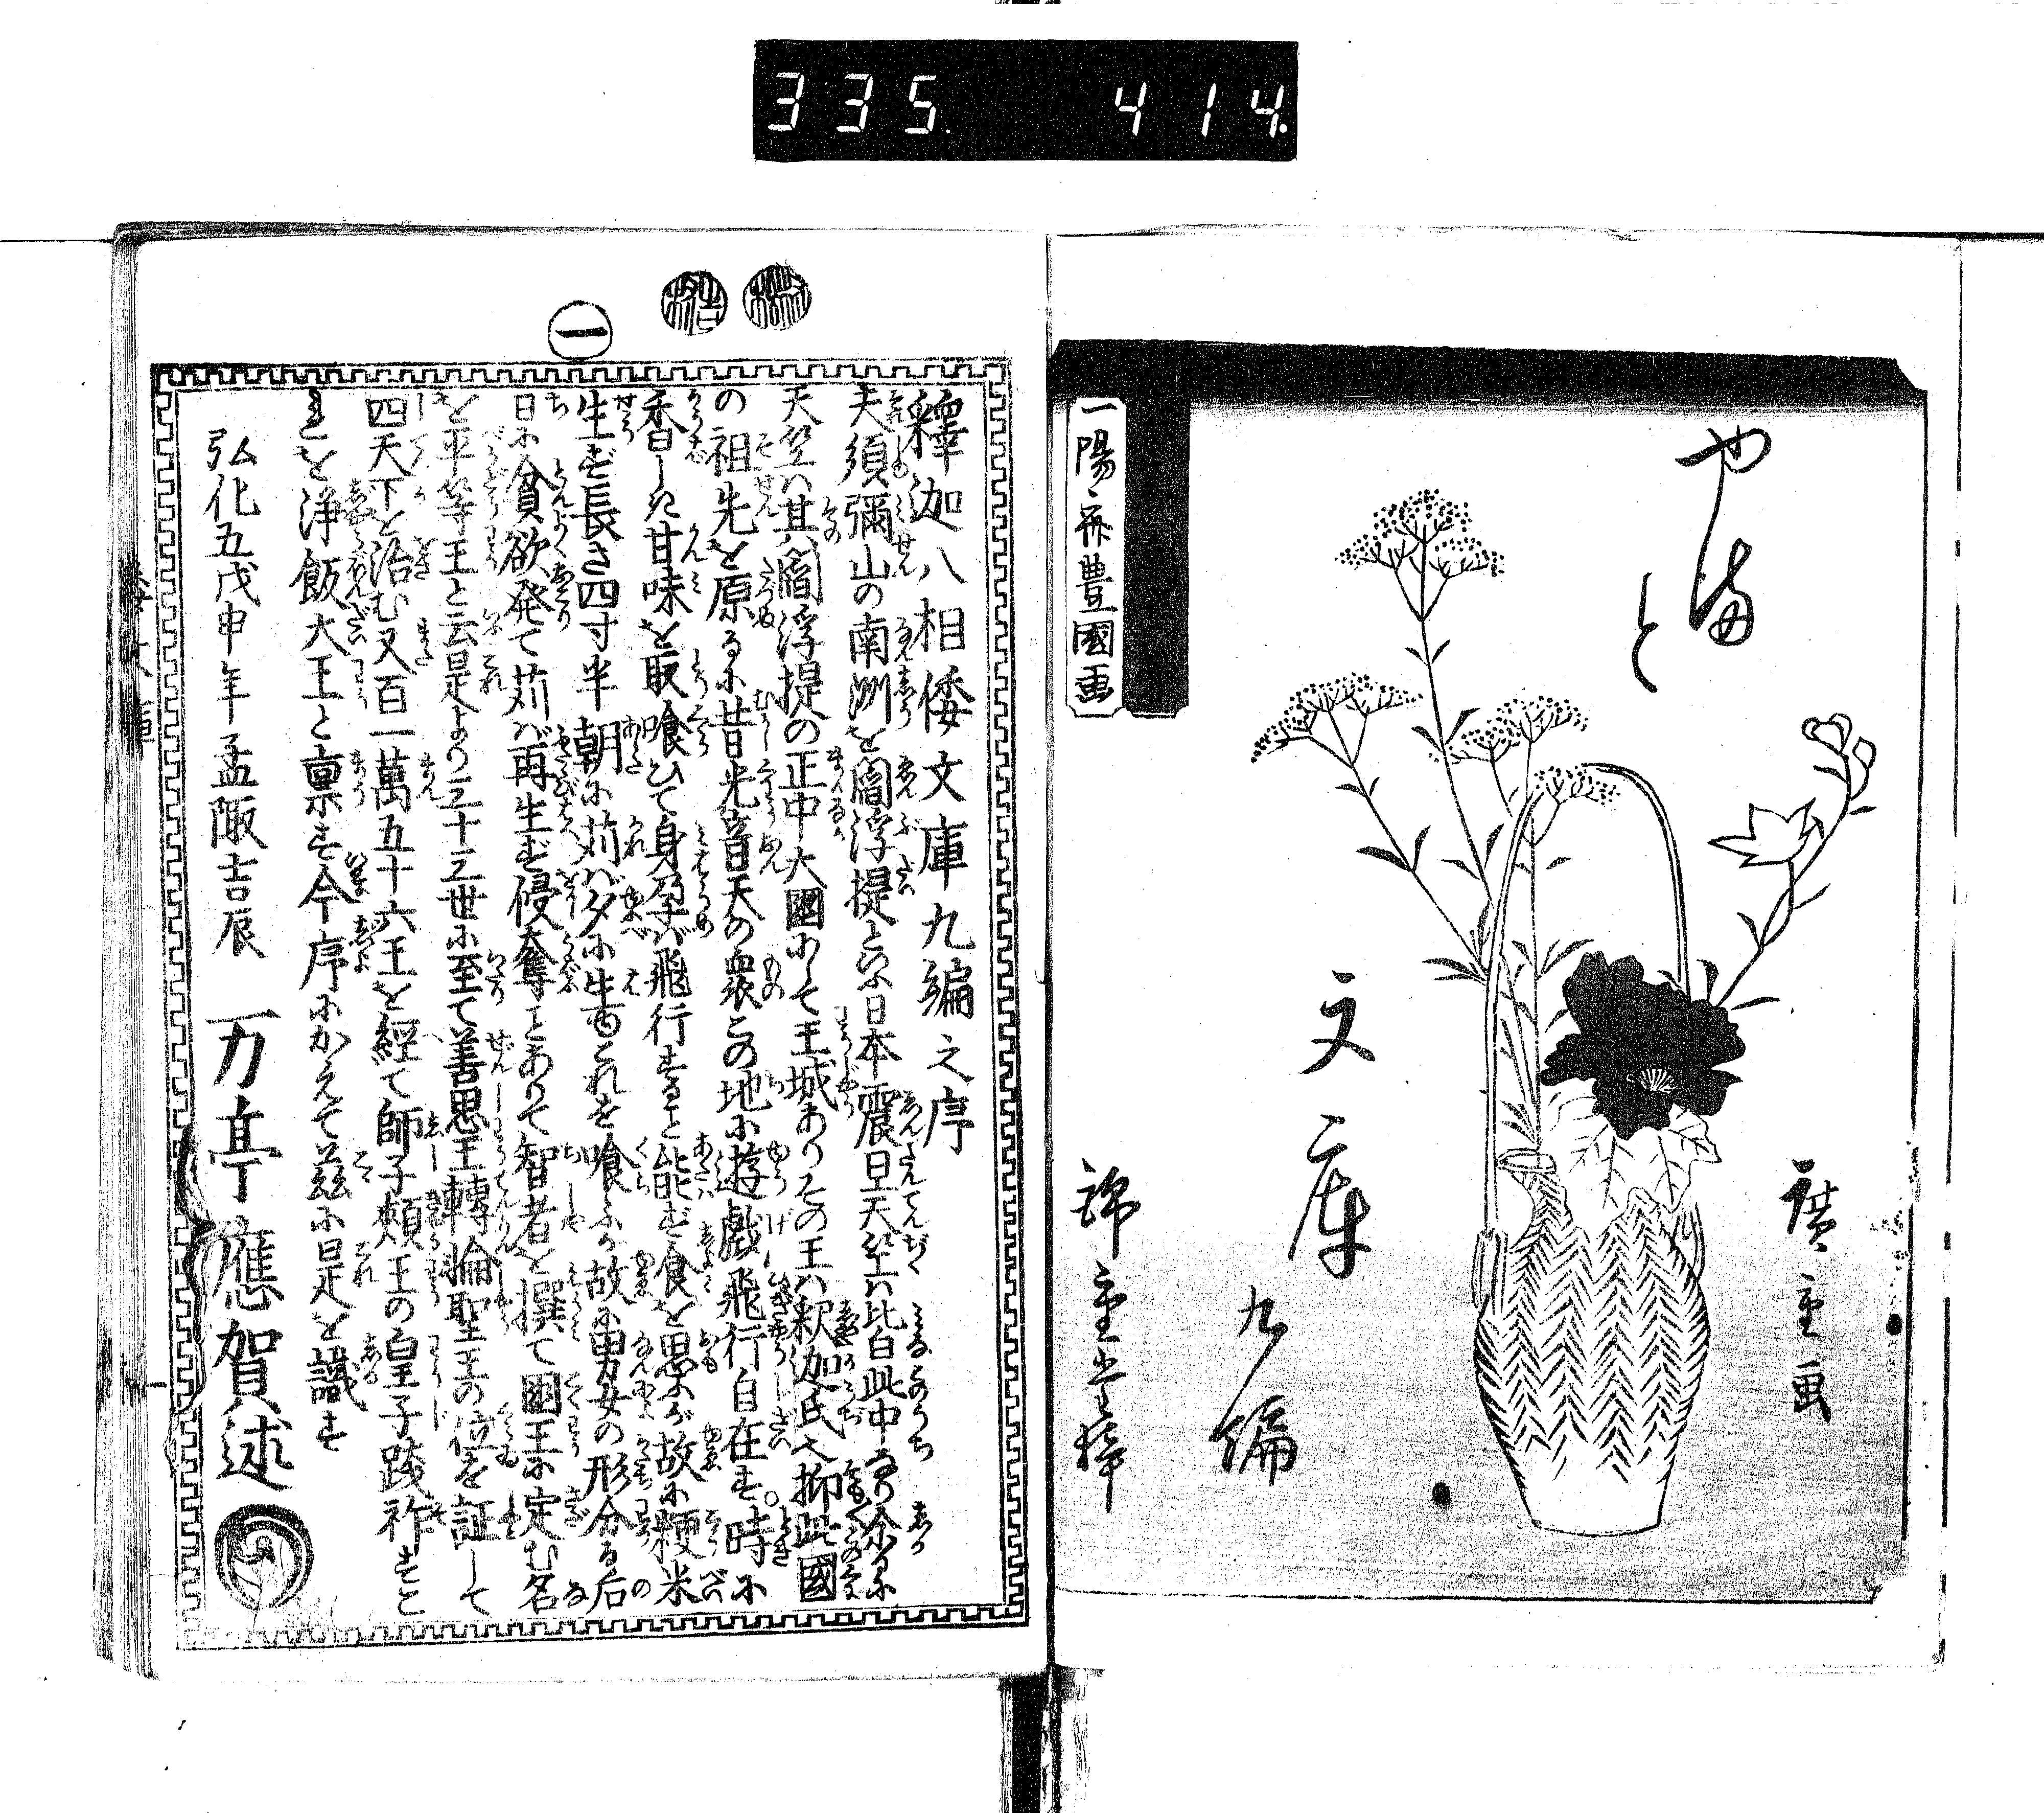 335. 414.
やま
と
文庫
九編
廣重画
錦重堂梓
一陽斎豊國画
一
釋迦八相倭文庫九編之序
夫須彌山の南洲を閻浮提といふ日本震旦天竺ハ此皆此中
天竺ハ其閻浮提の正中大國にして王城ありその王ハ釈迦氏也抑此國
の祖先を原るに昔光音天の衆この地に遊戯飛行自在す。時に
香しき甘味を取喰ひて身孕バ飛行すること能ず食を思ふが故に粳米
生ず長さ四寸半朝に苅バ夕に生るこれを喰ふが故に男女の形分る后
日に貧欲発て苅バ再生ず侵奪ことありて智者を撰て國王に定む名
を平等王と云是より三十三世に至て善思王轉輪聖王の位を証して
四天下を治む又百一萬五十六王を経て師子頬王の皇子踐祚すこ
れを浄飯大王と稟す今序にかえて茲に是を識す
弘化五戊申年孟陬吉辰 万亭應賀述